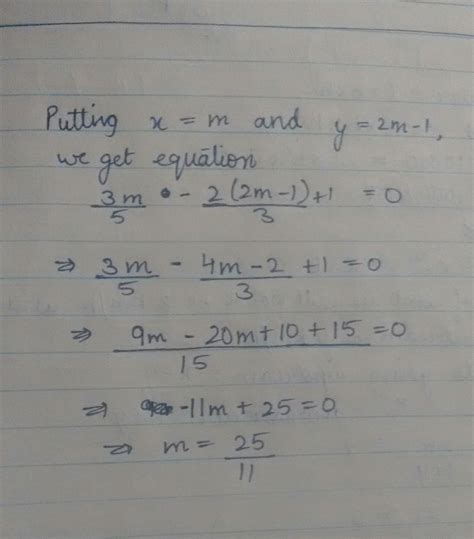 Putting x = m and y = 2m-1,
we get equation
3m/5 - 2(2m-1)/3 + 1 = 0
⇒ 3m/5 - 4m-2/3 + 1 = 0
⇒ 9m - 20m + 10 + 15/15 = 0
⇒ -11m + 25 = 0
⇒ m = 25/11